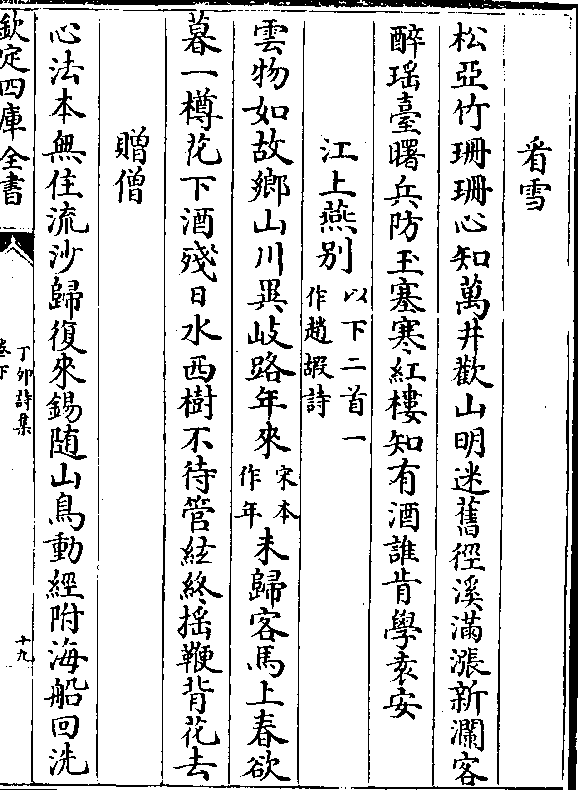 看雪
松亞竹珊珊心知萬井歡山明迷舊徑溪滿漲新瀾客
醉瑶臺曙兵防玉塞寒紅樓知有酒誰肯學袁安
江上燕别以下二首一
作趙嘏詩
雲物如故鄉山川異岐路年來宋本
作年未歸客馬上春欲
暮一樽花下酒殘日水西樹不待管絃終揺鞭背花去
贈僧
心法本無住流沙歸復來錫随山鳥動經附海船回洗
欽定四庫全書
丁卯詩集
卷下
十九